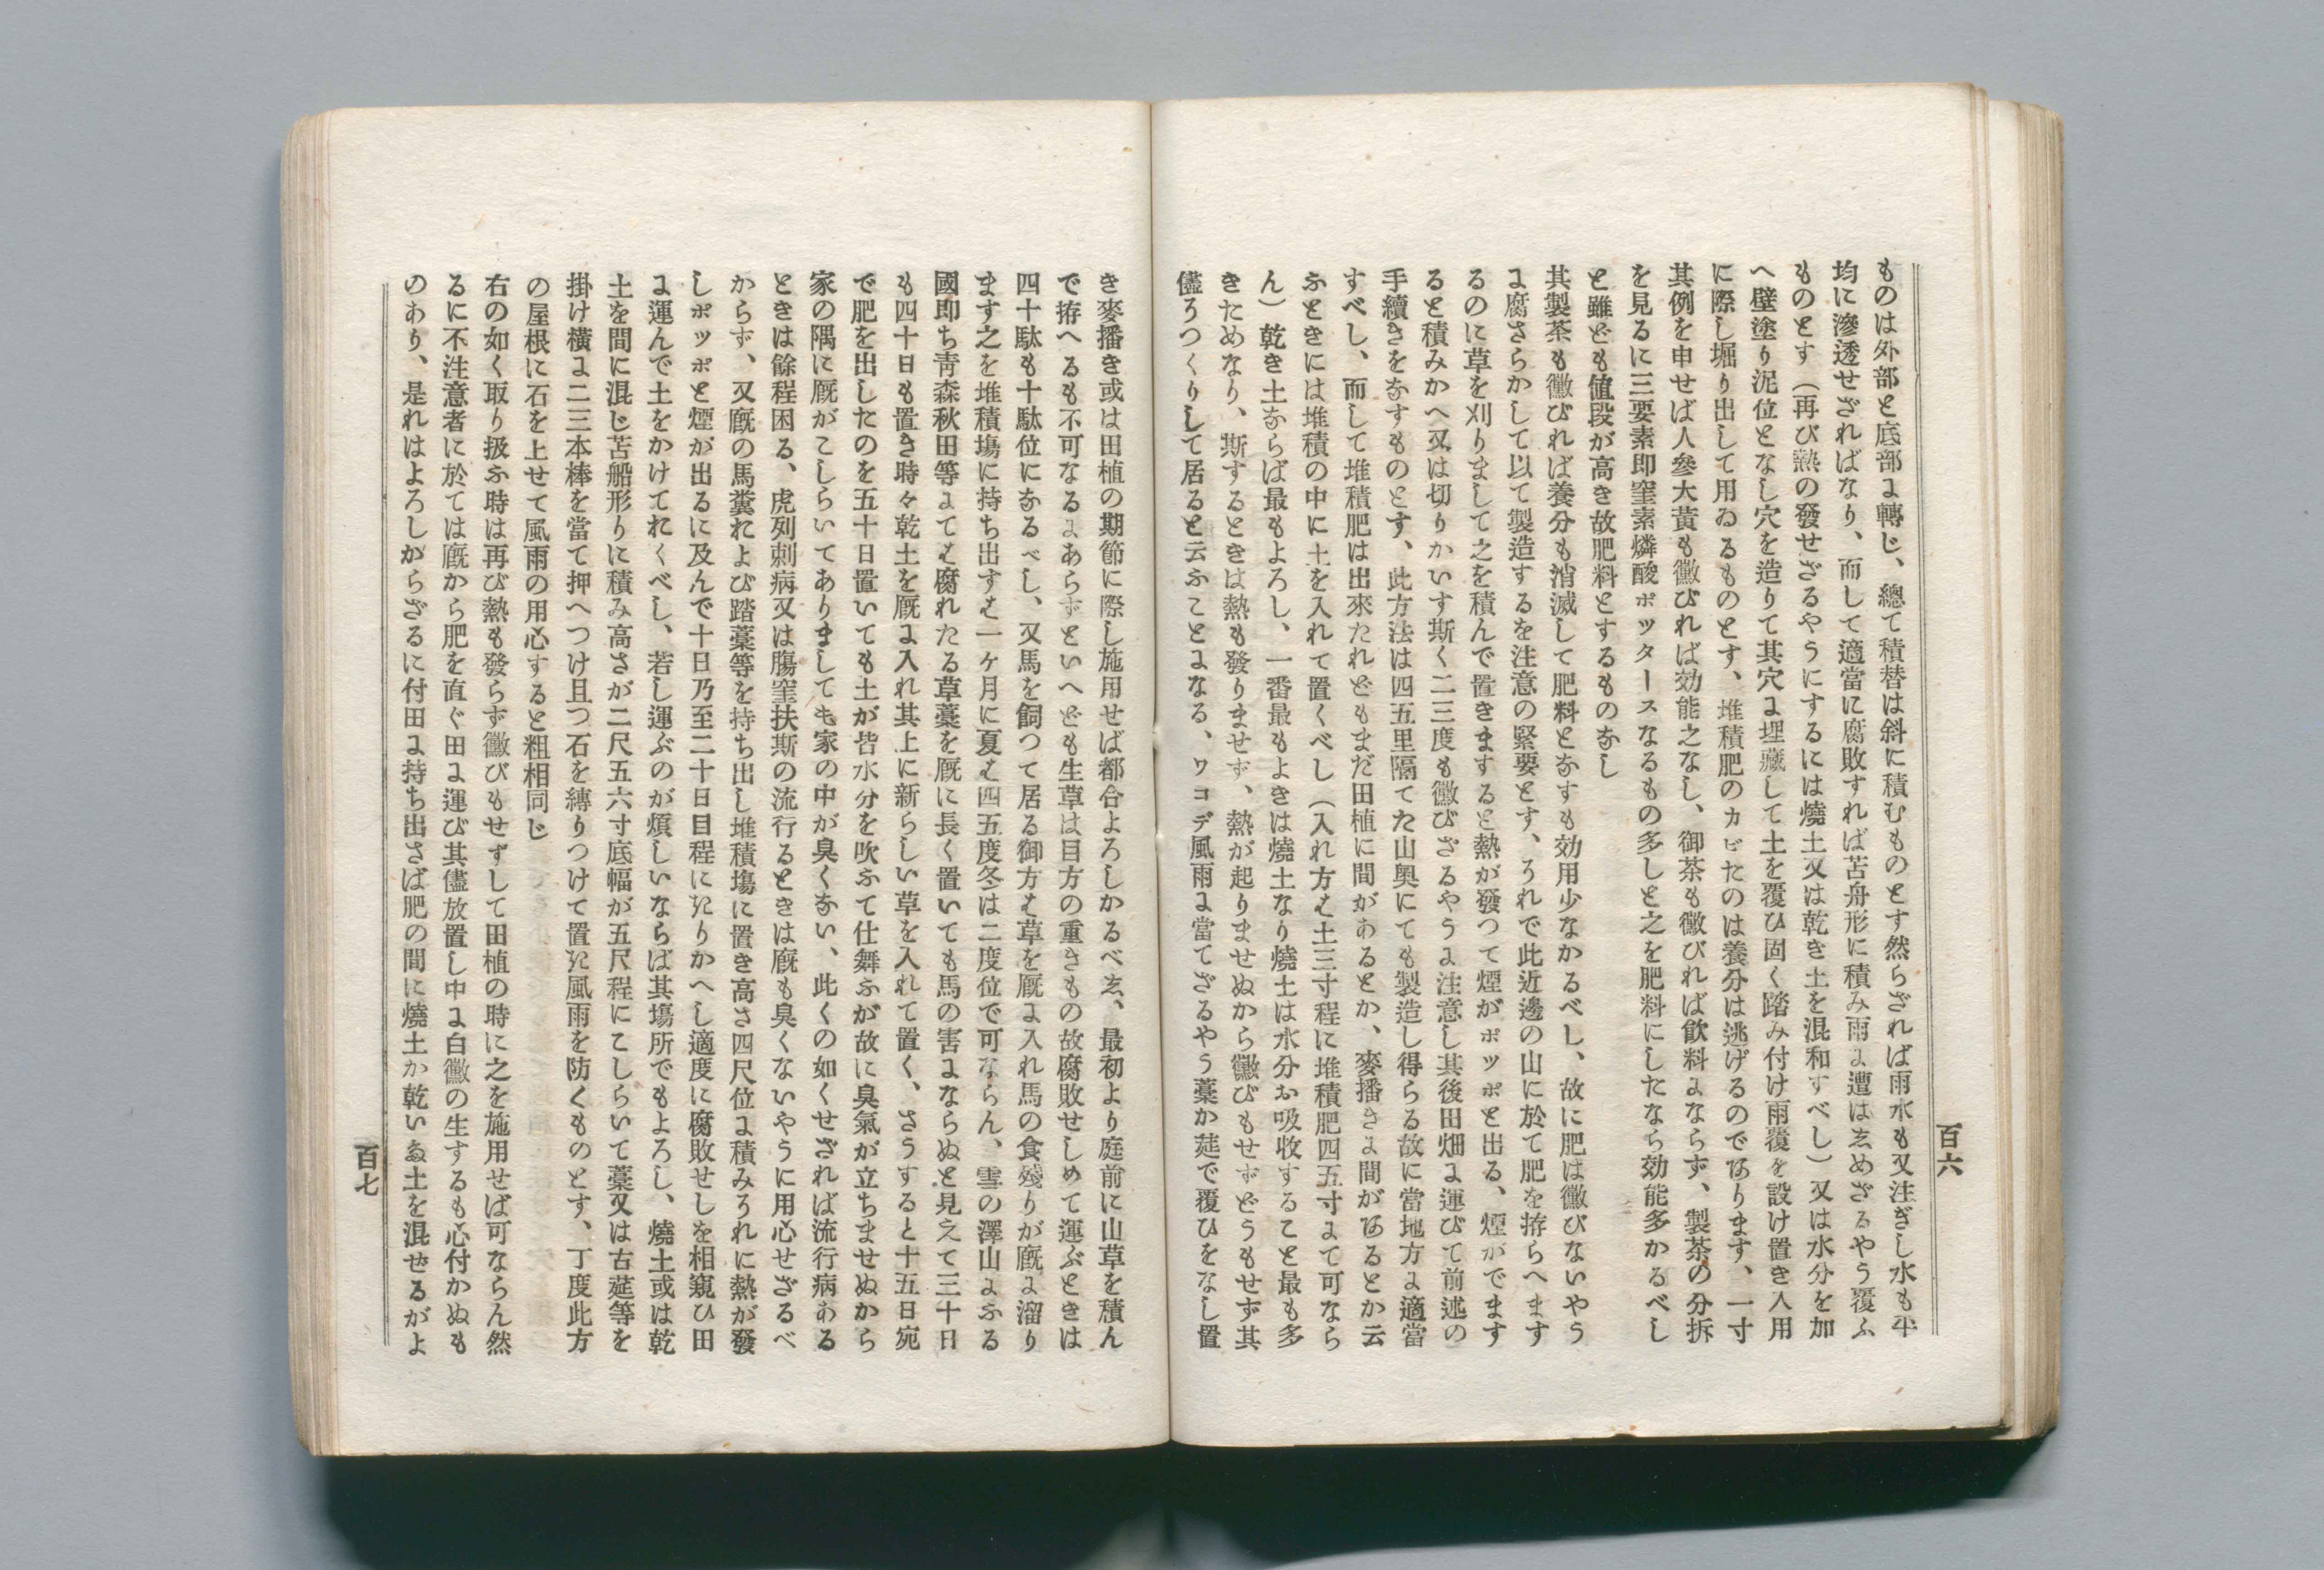 百六
ものは外部と底部に轉じ、總て積替は斜に積むものとす然らざれば雨水も又注ぎし水も平
均に滲透せざればなり、而して適當に腐敗すれば苫舟形に積み雨に遭はしめざるやう覆ふ
ものとす（再び熱の發せざるやうにするには燒土又は乾き土を混和すべし）又は水分を加
へ壁塗り泥位となし穴を造りて其穴に埋藏して土を覆ひ固く踏み付け雨覆を設け置き入用
に際し堀り出して用ゐるものとす、堆積肥のカビたのは養分は逃げるのであります、一寸
其例を申せば人參大黃も黴びれば効能之なし、御茶も黴びれば飮料にならず、製茶の分拆
を見るに三要素即窒素燐酸ポッタースなるもの多しと之を肥料にしたなら効能多かるべし
と雖ども値段が高き故肥料とするものなし
其製茶も黴びれば養分も消滅して肥料となすも効用少なかるべし、故に肥は黴びないやう
に腐さらかして以て製造するを注意の緊要とす、それで此近邊の山に於て肥を拵らへます
るのに草を刈りまして之を積んで置きますると熱が發つて煙がポッポと出る、煙がでます
ると積みかへ又は切りかいす斯く二三度も黴びざるやうに注意し其後田畑に運びて前述の
手續きをなすものとす、此方法は四五里隔てた山奧にても製造し得らる故に當地方に適當
すべし、而して堆積肥は出來たれどもまだ田植に間があるとか、麥播きに間があるとか云
ふときには堆積の中に土を入れて置くべし（入れ方は土三寸程に堆積肥四五寸にて可なら
ん）乾き土ならば最もよろし、一番最もよきは燒土なり燒土は水分お吸收すること最も多
きためなり、斯するときは熱も發りませず、熱が起りませぬから黴びもせずどうもせず其
儘そつくりして居ると云ふことになる、ワコデ風雨に當てざるやう藁か莚で覆ひをなし置
き麥播き或は田植の期節に際し施用せば都合よろしかるべし、最初より庭前に山草を積ん
で拵へるも不可なるにあらずといへども生草は目方の重きもの故腐敗せしめて運ぶときは
四十駄も十駄位になるべし、又馬を飼つて居る御方は草を厩に入れ馬の食殘りが厩に溜り
ます之を堆積塲に持ち出すは一ヶ月に夏は四五度冬は二度位で可ならん、雪の澤山にふる
國即ち靑森秋田等にては腐れたる草藁を厩に長く置いても馬の害にならぬと見えて三十日
も四十日も置き時々乾土を厩に入れ其上に新らしい草を入れて置く、さうすると十五日宛
で肥を出したのを五十日置いても土が皆水分を吹ふて仕舞ふが故に臭氣が立ちませぬから
家の隅に厩がこしらいてありましても家の中が臭くない、此くの如くせざれば流行病ある
ときは餘程困る、虎列剌病又は膓窒扶斯の流行るときは廐も臭くないやうに用心せざるべ
からず、又廐の馬糞および踏藁等を持ち出し堆積塲に置き高さ四尺位に積みそれに熱が發
しポッポと煙が出るに及んで十日乃至二十日目程にきりかへし適度に腐敗せしを相窺ひ田
に運んで土をかけておくべし、若し運ぶのが煩しいならば其塲所でもよろし、燒土或は乾
土を間に混じ苫船形りに積み高さが二尺五六寸底幅が五尺程にこしらいて藁又は古莚等を
掛け橫に二三本棒を當て押へつけ且つ石を縛りつけて置き風雨を防くものとす、丁度此方
の屋根に石を上せて風雨の用心すると粗相同じ
右の如く取り扱ふ時は再び熱も發らず黴びもせずして田植の時に之を施用せば可ならん然
るに不注意者に於ては廐から肥を直ぐ田に運び其儘放置し中に白黴の生するも心付かぬも
のあり、是れはよろしからざるに付田に持ち出さば肥の間に燒土か乾いゐ土を混ぜるがよ
百七